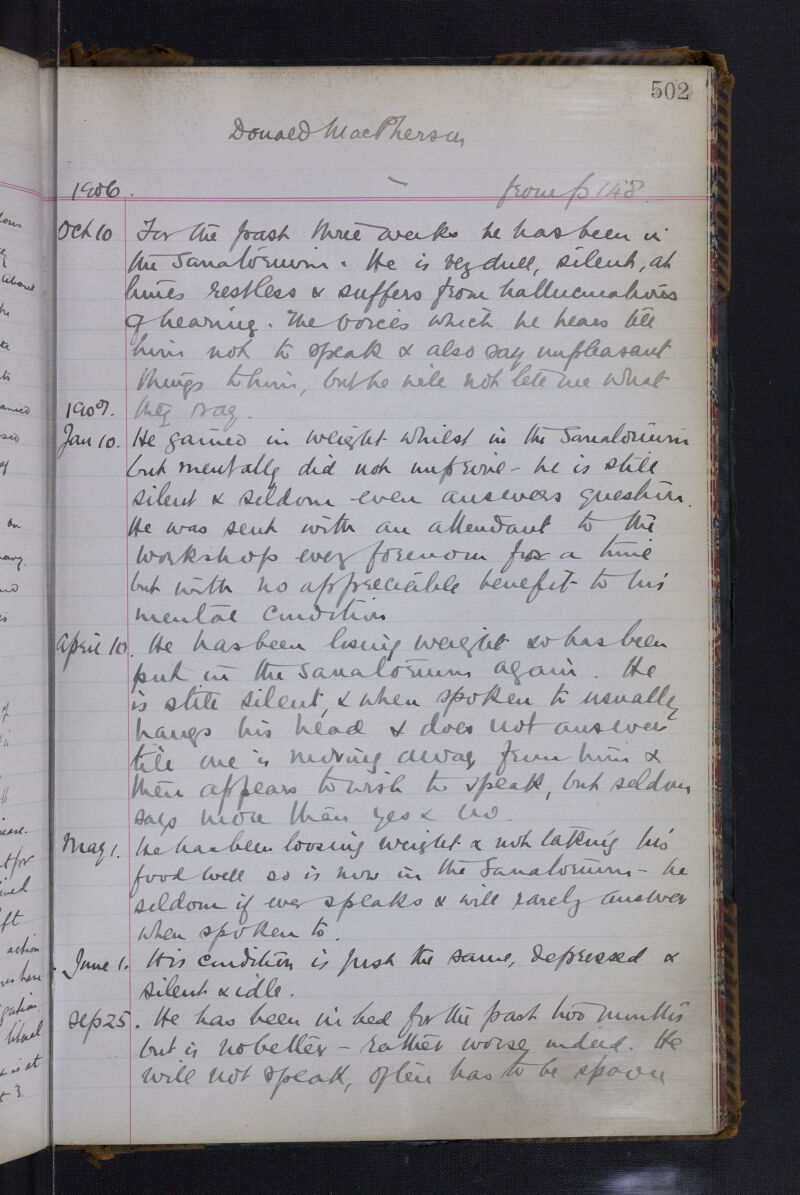 502
Donald MacPherson
1906. from p 148
Oct 10 For the past three weeks he has been in
the Sanatorium. He is very dull, silent, at
times restless & suffers from hallucinations
of hearing. The voices which he hears tell
him not to speak & also say unpleasant
things to him, but he will not tell me what
1907. they say.
Jan 10. He gained in weight whilst in the Sanatorium
but mentally did not improve - he is still
silent & seldom even answers question.
He was sent with an attendant to the
workshop every forenoon for a time
but with no appreciable benefit to his
mental condition
April 10. He has been losing weight so has been
put in the Sanatorium again. He
is still silent, & when spoken to usually
hangs his head & does not answer
till one is moving away from him &
then appears to wish to speak, but seldom
says more than yes & no.
May 1. He has been loosing weight & not taking his
food well so is now in the Sanatorium - he
seldom if ever speaks & will rarely answer
when spoken to.
June 1. His condition is just the same, depressed &
silent & idle.
Sep 25. He has been in bed for the past two months
but is no better - rather worse indeed. He
will not speak, often has to be spoon